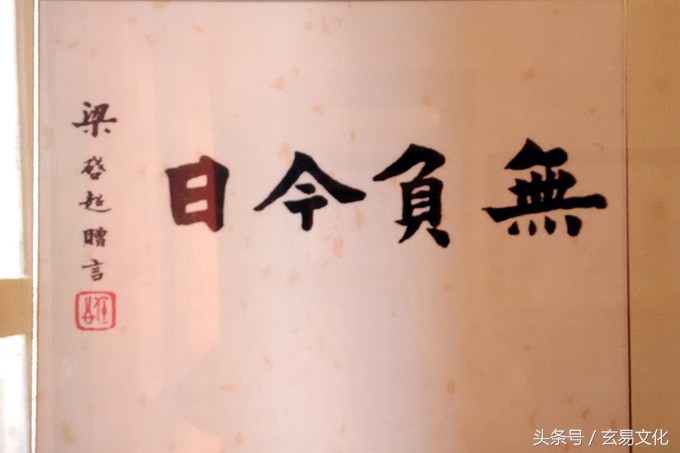 無負今日
梁啓超贈言
头条号／玄易文化